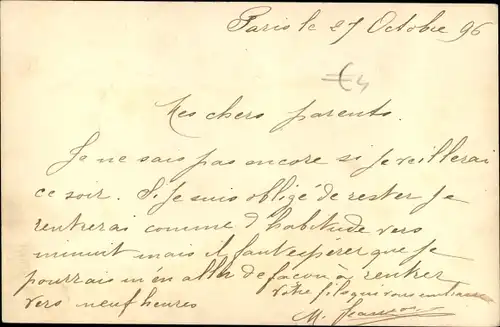 Paris le 27 Octobre 96
€4
Mes chers parents.
Je ne sais pas encore si je veillerai
ce soir. Si je suis obligé de rester je
rentrerai comme d'habitude vers
minuit mais il faut espérer que je
pourrais m'en aller de façon à rentrer
vers neuf heures
Votre fils qui vous
M.